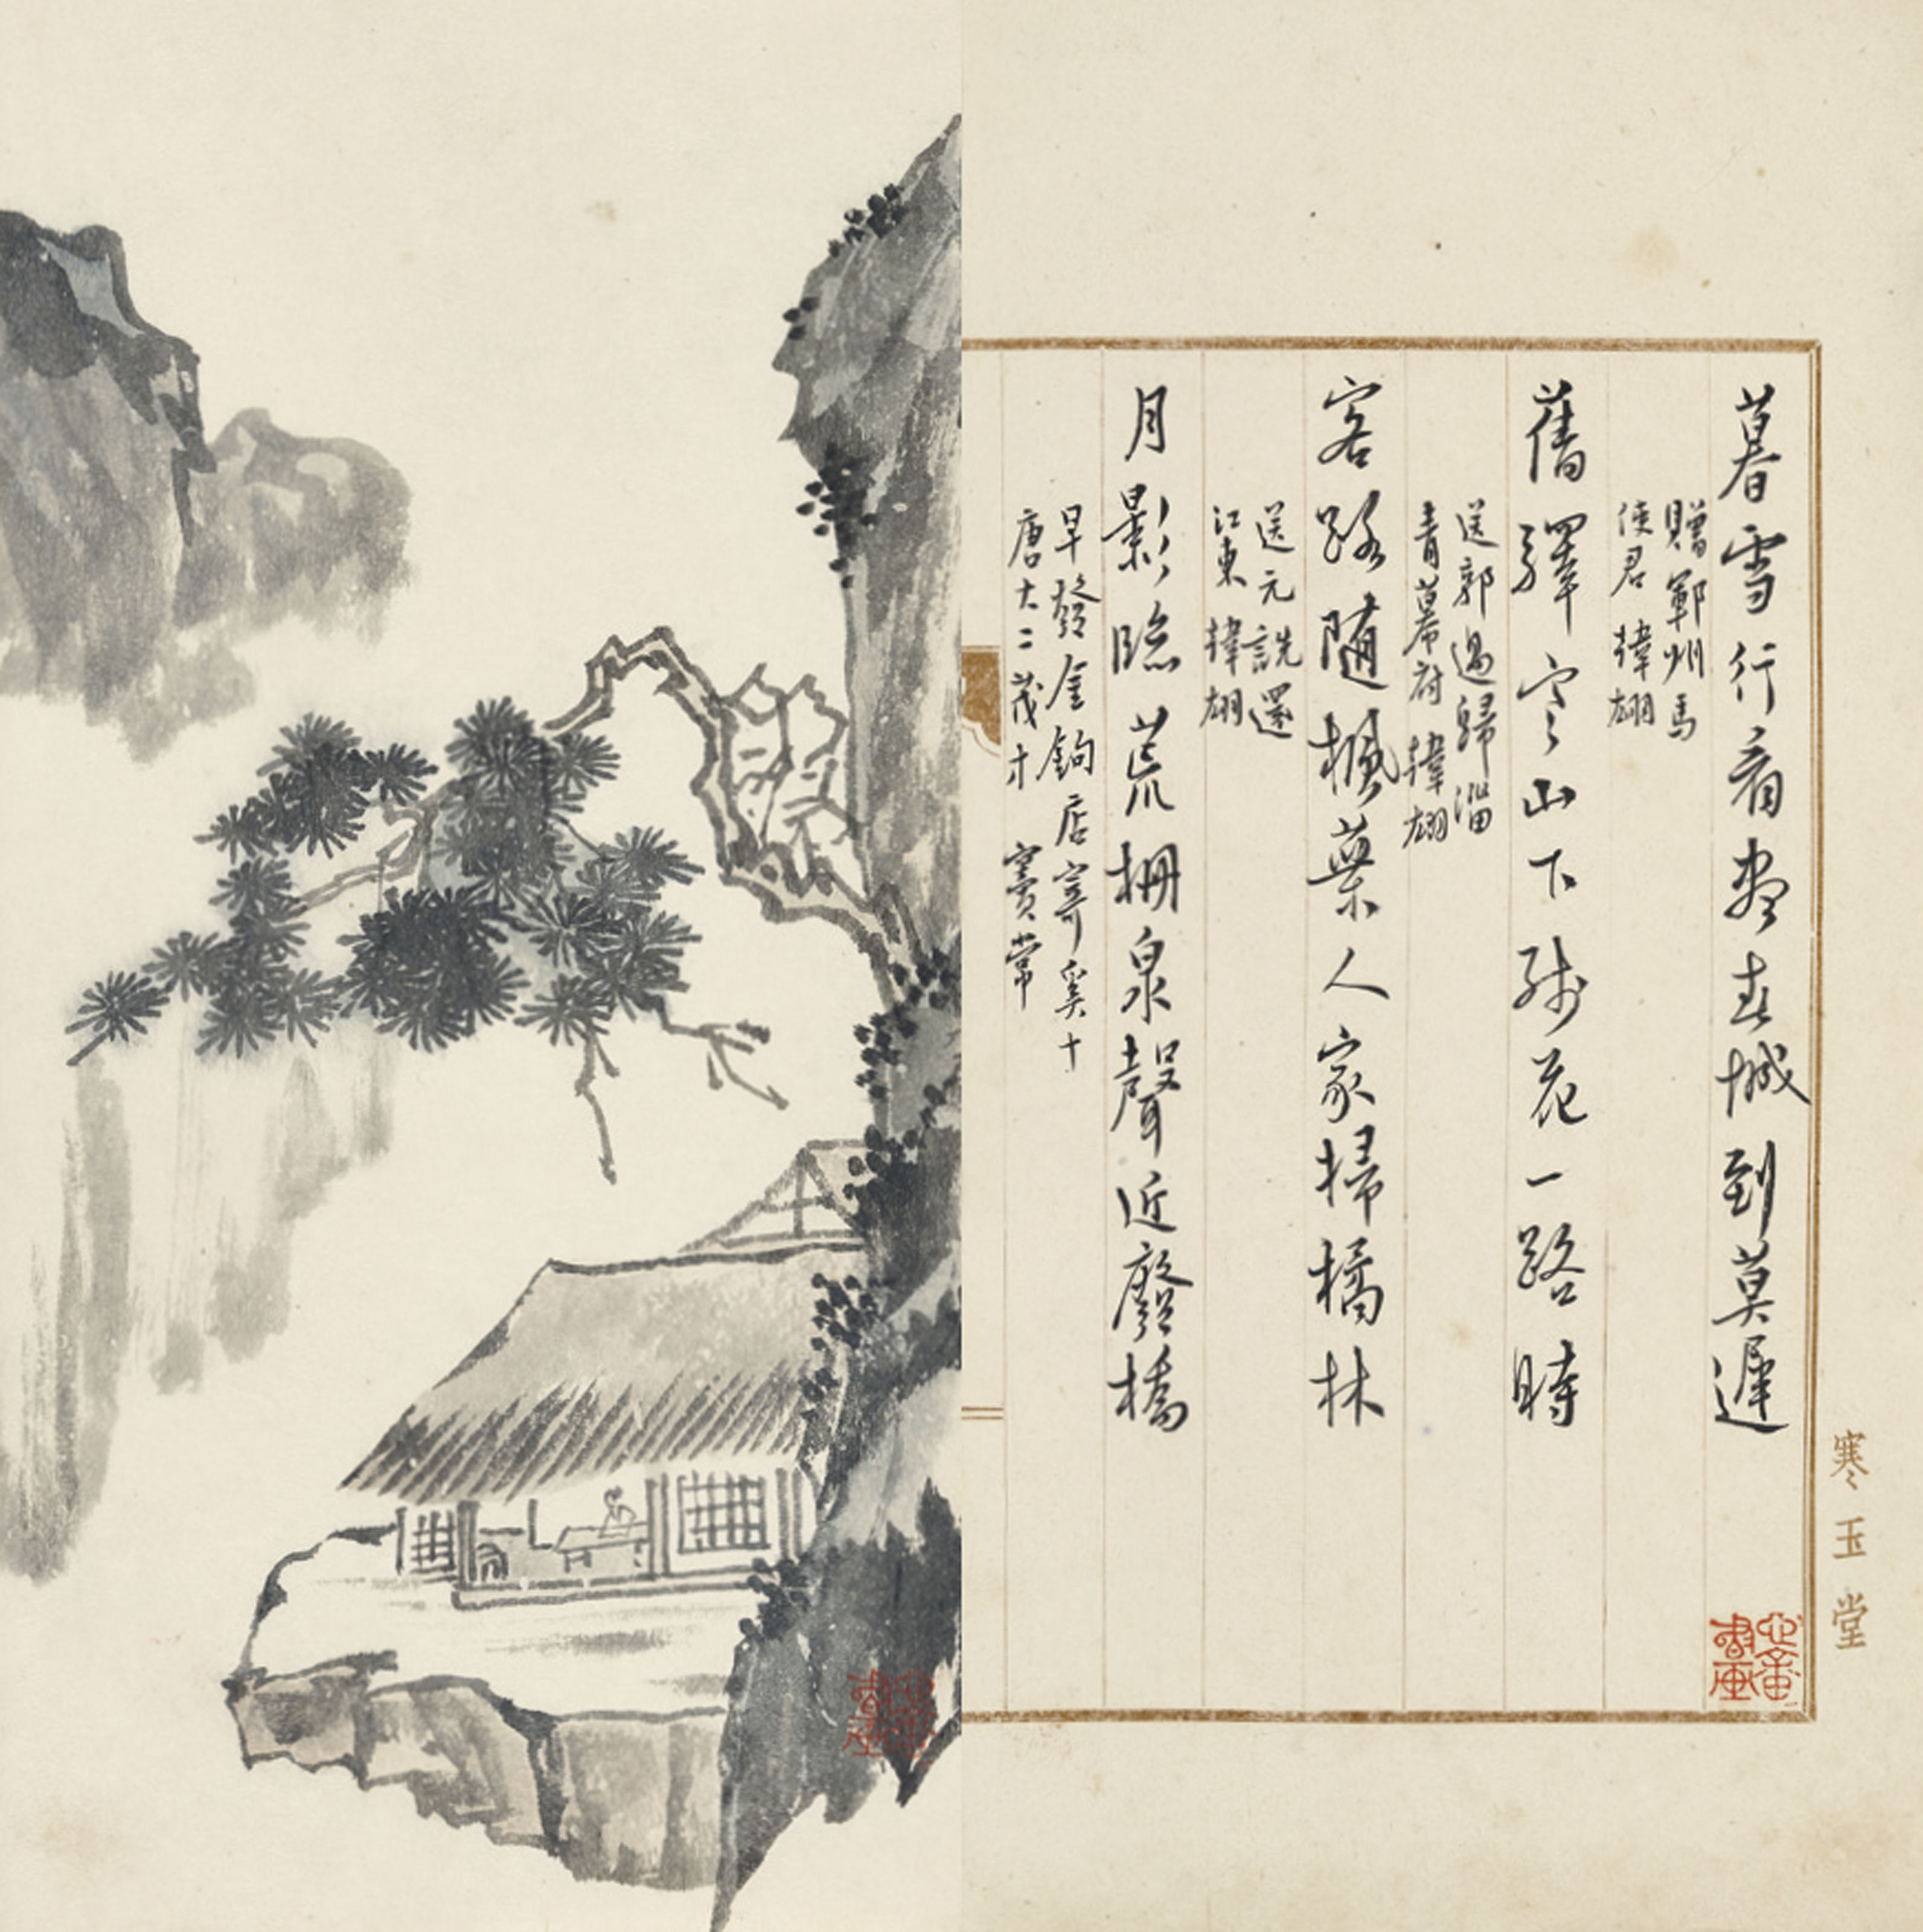 寒玉堂
暮雪行看盡春城到莫遲
贈鄆州馬
使君 韓翃
舊驛寒山下殘花一路時
送郭過歸淄
青幕府 韓翃
客路隨楓葉人家掃橘林
送元詵還
江東 韓翃
月影臨荒柵泉聲近廢橋
早發金鉤店寄奚十
唐大二茂才 竇常
心畬書畫
心畬書畫